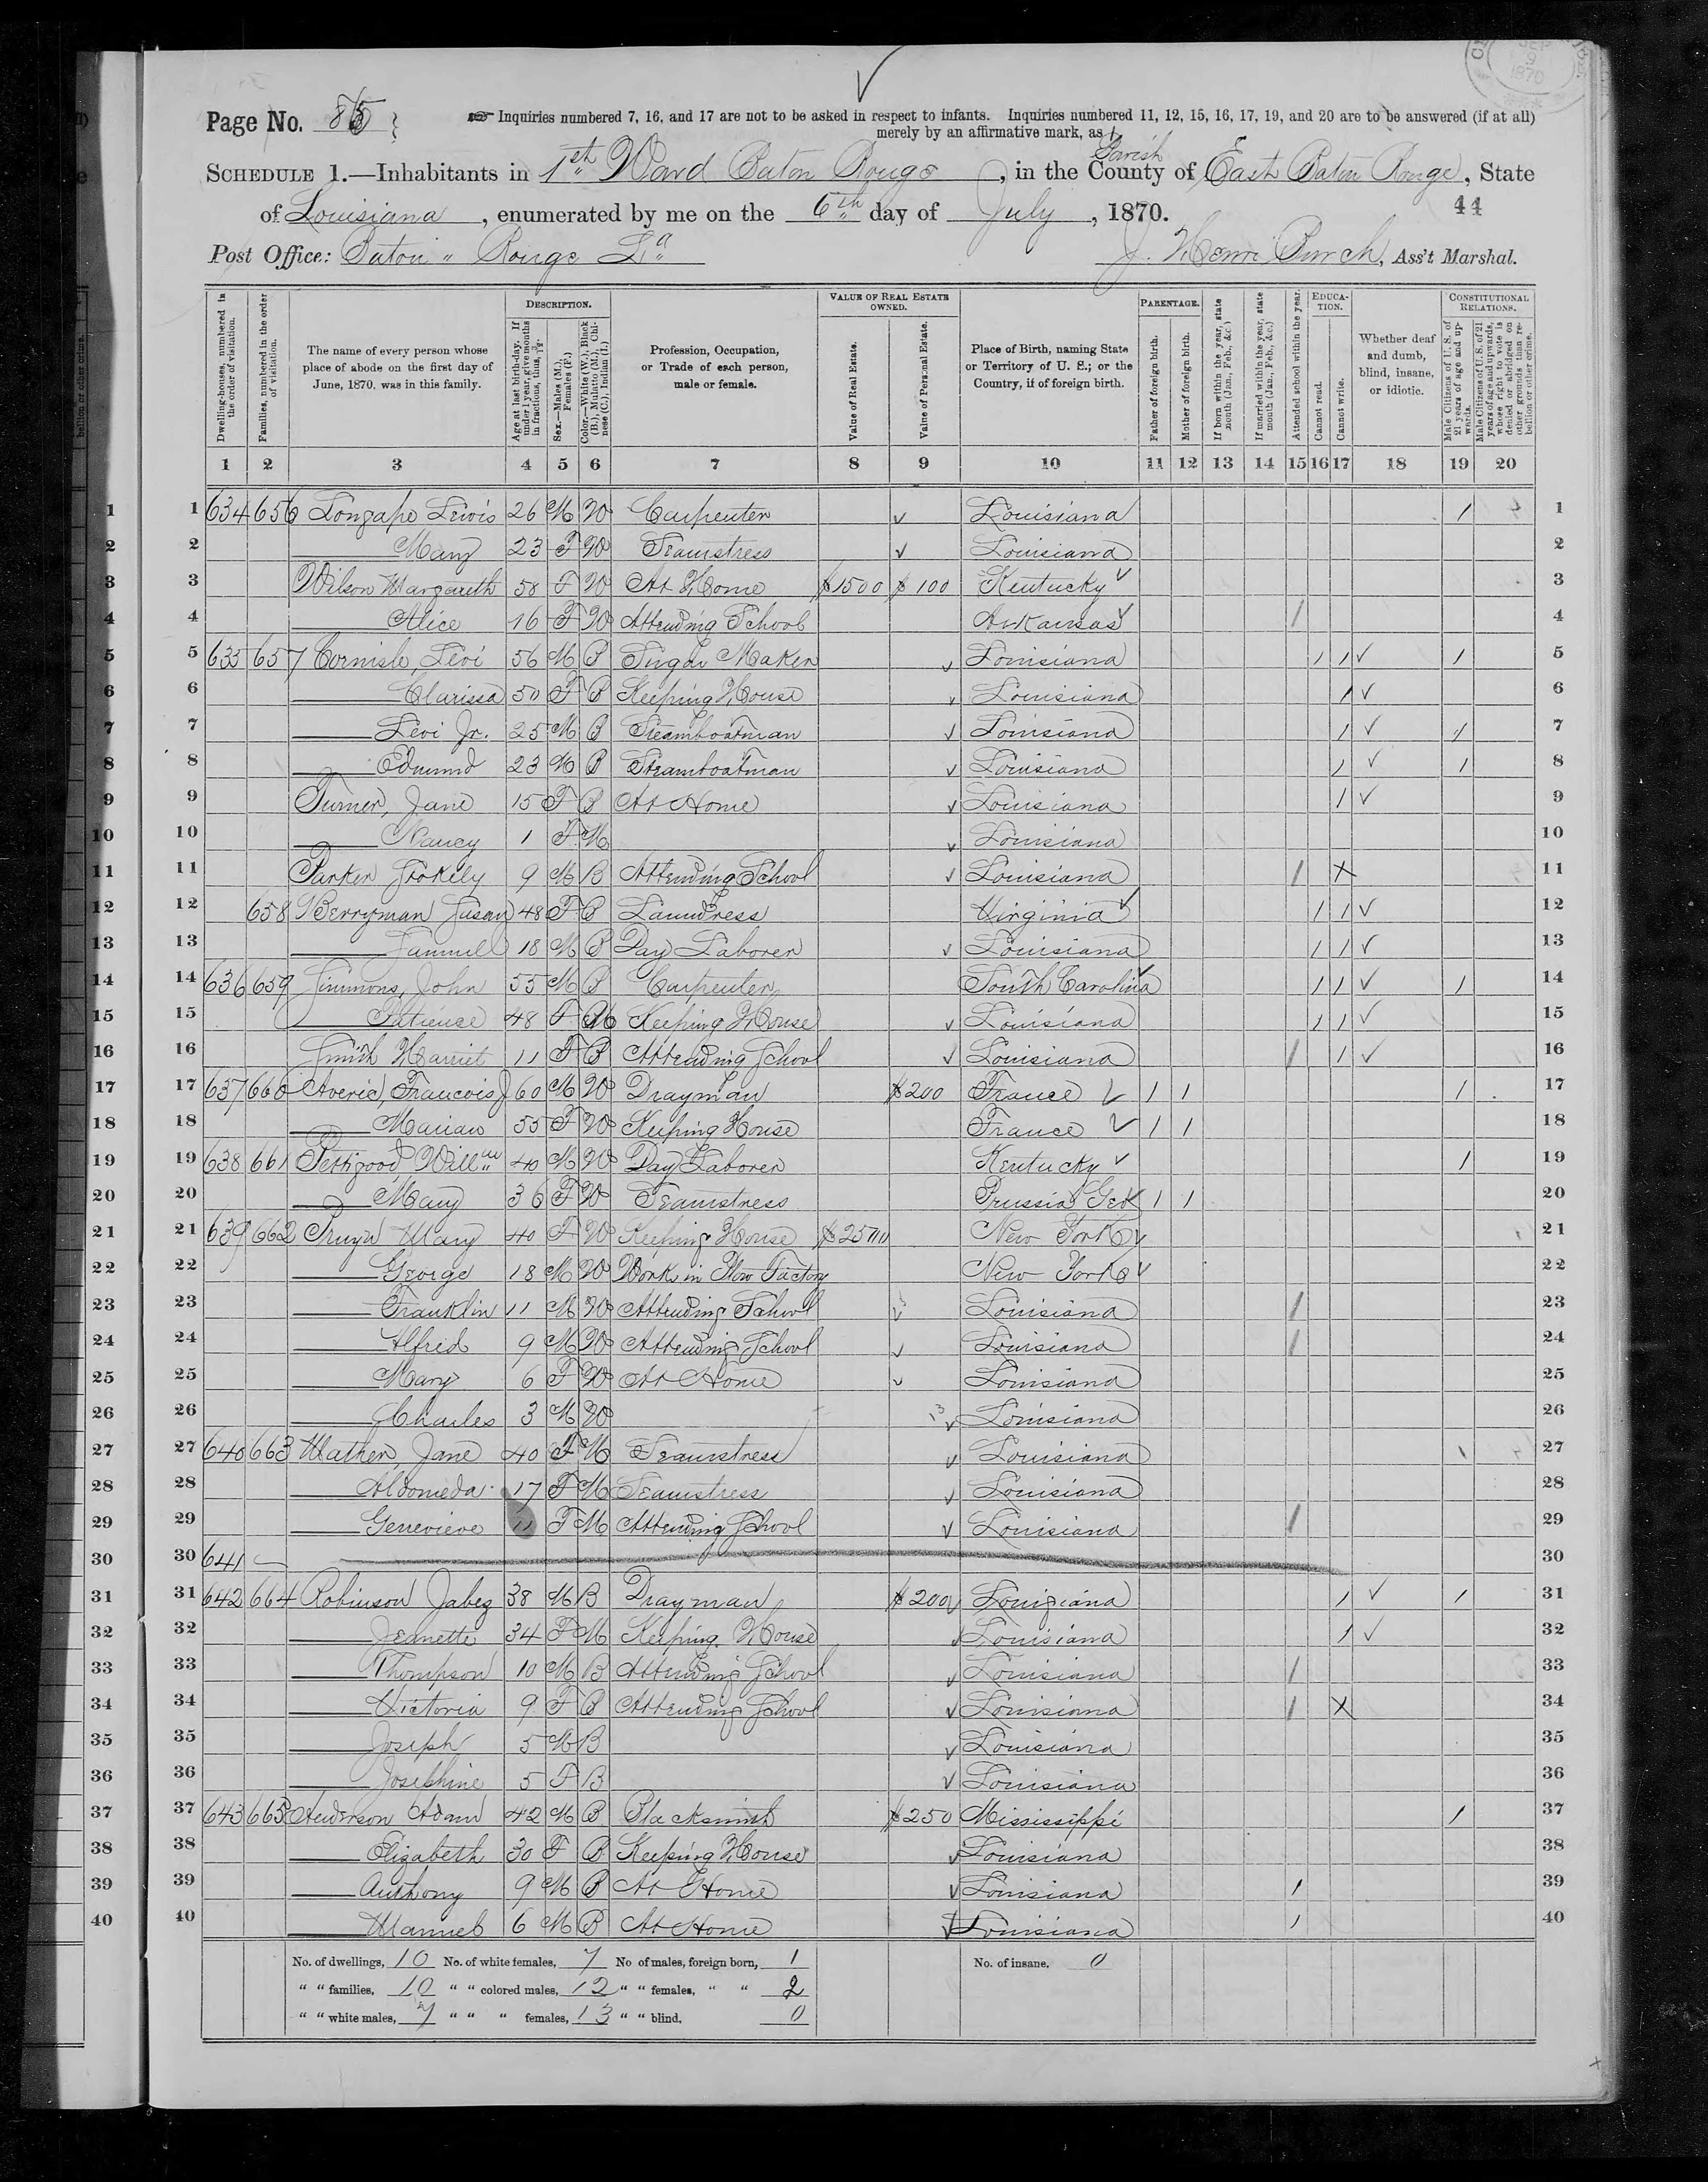 SEP 9 1870
Page No. 85
Inquiries numbered 7, 16, and 17 are not to be asked in respect to infants. Inquiries numbered 11, 12, 15, 16, 17, 19, and 20 are to be answered (if at all)
merely by an affirmative mark, as /.
Parish
SCHEDULE 1.—Inhabitants in 1st Ward Baton Rouge, in the County of East Baton Rouge, State
of Louisiana, enumerated by me on the 6th day of July, 1870.
44
Post Office: Baton Rouge La
J. Henri Burch, Ass't Marshal.
DESCRIPTION. VALUE OF REAL ESTATE OWNED. PARENTAGE. EDUCATION. CONSTITUTIONAL RELATIONS.
Dwelling-houses, numbered in the order of visitation.
Families, numbered in the order of visitation.
The name of every person whose place of abode on the first day of June, 1870, was in this family.
Age at last birth-day. If under 1 year, give months in fractions, thus, 3/12.
Sex.—Males (M.), Females (F.)
Color.—White (W.), Black (B.), Mulatto (M.), Chinese (C.), Indian (I.)
Profession, Occupation, or Trade of each person, male or female.
Value of Real Estate.
Value of Personal Estate.
Place of Birth, naming State or Territory of U. S.; or the Country, if of foreign birth.
Father of foreign birth.
Mother of foreign birth.
If born within the year, state month (Jan., Feb., &c.)
If married within the year, state month (Jan., Feb., &c.)
Attended school within the year.
Cannot read.
Cannot write.
Whether deaf and dumb, blind, insane, or idiotic.
Male Citizens of U. S. of 21 years of age and upwards.
Male Citizens of U. S. of 21 years of age and upwards, whose right to vote is denied or abridged on other grounds than rebellion or other crime.
1 2 3 4 5 6 7 8 9 10 11 12 13 14 15 16 17 18 19 20
1 634 656 Lewis 26 M W Carpenter Louisiana 1 1
2 Mary 23 F W Seamstress Louisiana 2
3 Wilson Margareth 58 F W At Home $1500 $100 Kentucky 3
4 Alice 16 F W Attending School Arkansas / 4
5 635 657 Cornish, Levi 56 M B Sugar Maker Louisiana 1 1 1 5
6 Clarissa 50 F B Keeping House Louisiana 1 6
7 Levi Jr. 25 M B Steamboatman Louisiana 1 1 7
8 Edmund 23 M B Steamboatman Louisiana 1 1 8
9 Turner, Jane 15 F B At Home Louisiana 1 9
10 Nancy 1 F M Louisiana 10
11 Parker 9 M B Attending School Louisiana / X 11
12 658 Berryman Susan 48 F B Laundress Virginia 1 1 12
13 Samuel 18 M B Day Laborer Louisiana 1 1 13
14 636 659 Simmons, John 55 M B Carpenter South Carolina 1 1 1 14
15 Patience 48 F M Keeping House Louisiana 1 1 15
16 Smith Harriet 11 F B Attending School Louisiana / 1 16
17 637 660 Averic, Francois J 60 M W Drayman $200 France 1 1 1 17
18 Marian 55 F W Keeping House France 1 1 18
19 638 661 Pettigood, Willm 40 M W Day Laborer Kentucky 1 19
20 Mary 36 F W Seamstress Prussia 1 1 20
21 639 662 Pruyn Mary 40 F W Keeping House $2500 New York 21
22 George 18 M W Works in Plow Factory New York 22
23 Franklin 11 M W Attending School Louisiana / 23
24 Alfred 9 M W Attending School Louisiana / 24
25 Mary 6 F W At Home Louisiana 25
26 Charles 3 M W Louisiana 26
27 640 663 Mather, Jane 40 F M Seamstress Louisiana 27
28 Aldomeda 17 F M Seamstress Louisiana 28
29 Genevieve 11 F M Attending School Louisiana / 29
30 641 30
31 642 664 Robinson Jabez 38 M B Drayman $200 Louisiana 1 1 31
32 Jeanette 34 F M Keeping House Louisiana 1 32
33 Thompson 10 M B Attending School Louisiana / 33
34 Victoria 9 F B Attending School Louisiana / X 34
35 Joseph 5 M B Louisiana 35
36 Josephine 5 F B Louisiana 36
37 643 665 Anderson Adam 42 M B Blacksmith $250 Mississippi 1 37
38 Elizabeth 30 F B Keeping House Louisiana 38
39 Anthony 9 M B At Home Louisiana / 39
40 Manuel 6 M B At Home Louisiana / 40
No. of dwellings, 10 No. of white females, 7 No of males, foreign born, 1 No. of insane, 0
" " families, 10 " " colored males, 12 " " females, " " 2
" " white males, 7 " " " females, 13 " " blind, 0